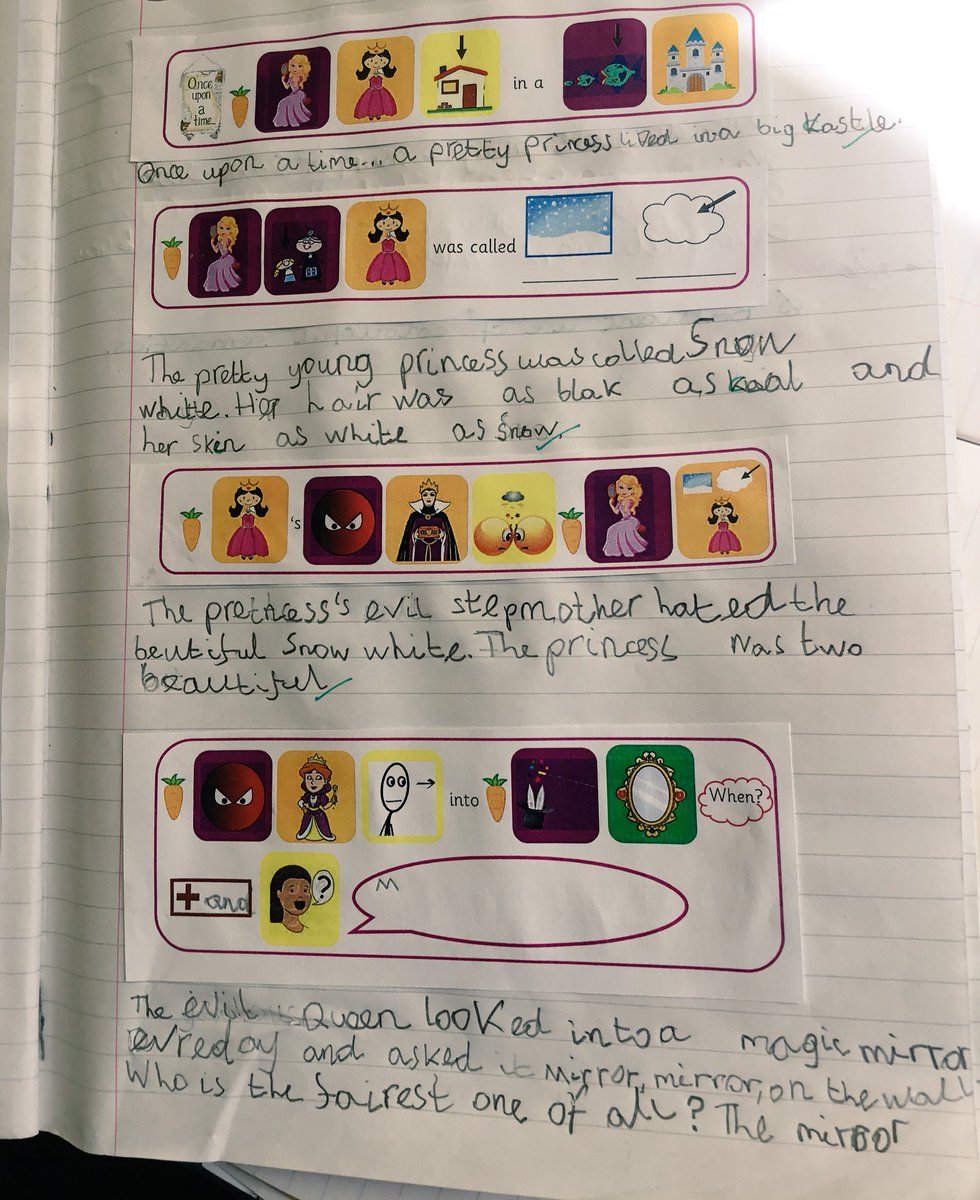 Once upon a time...
in a
Once upon a time... a pretty princess lived in a big kastle.
was called
The pretty young princess was called Snow
white. Her hair was as blak as kaal and
her skin as white as Snow.
's
The pretncess's evil stepmother hated the
beutiful Snow white. The princess was two
beautiful
into
When?
and
M
The evil Queen looked into a magic mirror
evreday and asked it mirror, mirror, on the wall
Who is the fairest one of all? The mirror